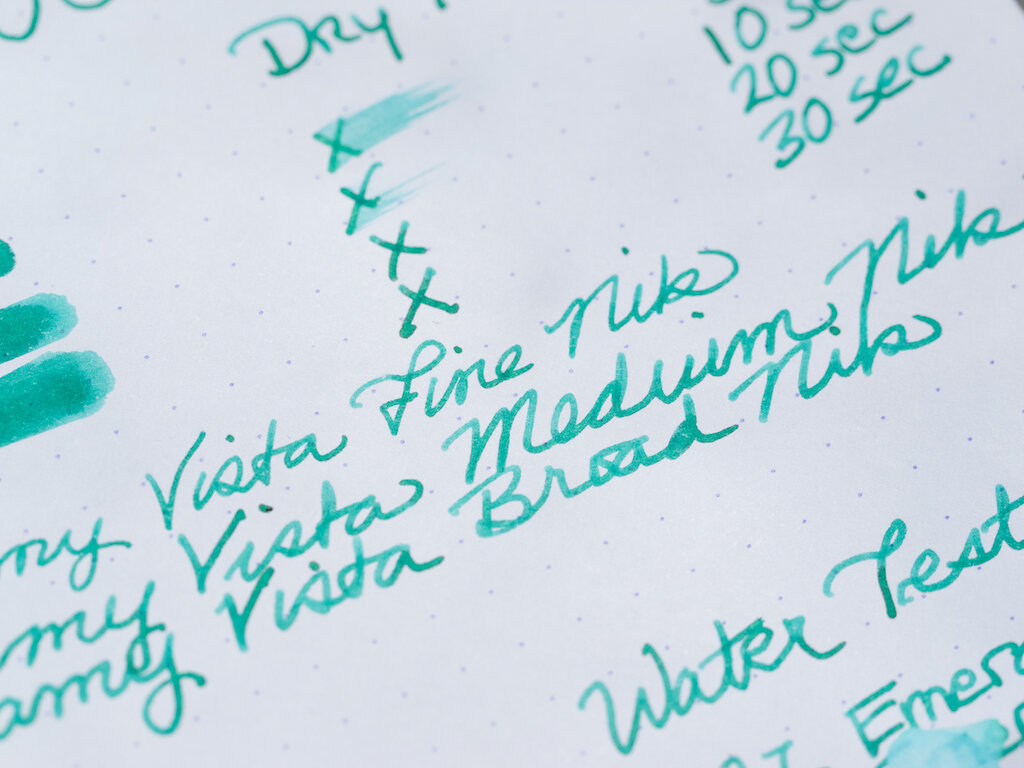 Dry
10 sec
20 sec
30 sec
x
x
x
x
my Vista Fine Nib
amy Vista Medium Nib
amy Vista Broad Nib
Water Test
Emer